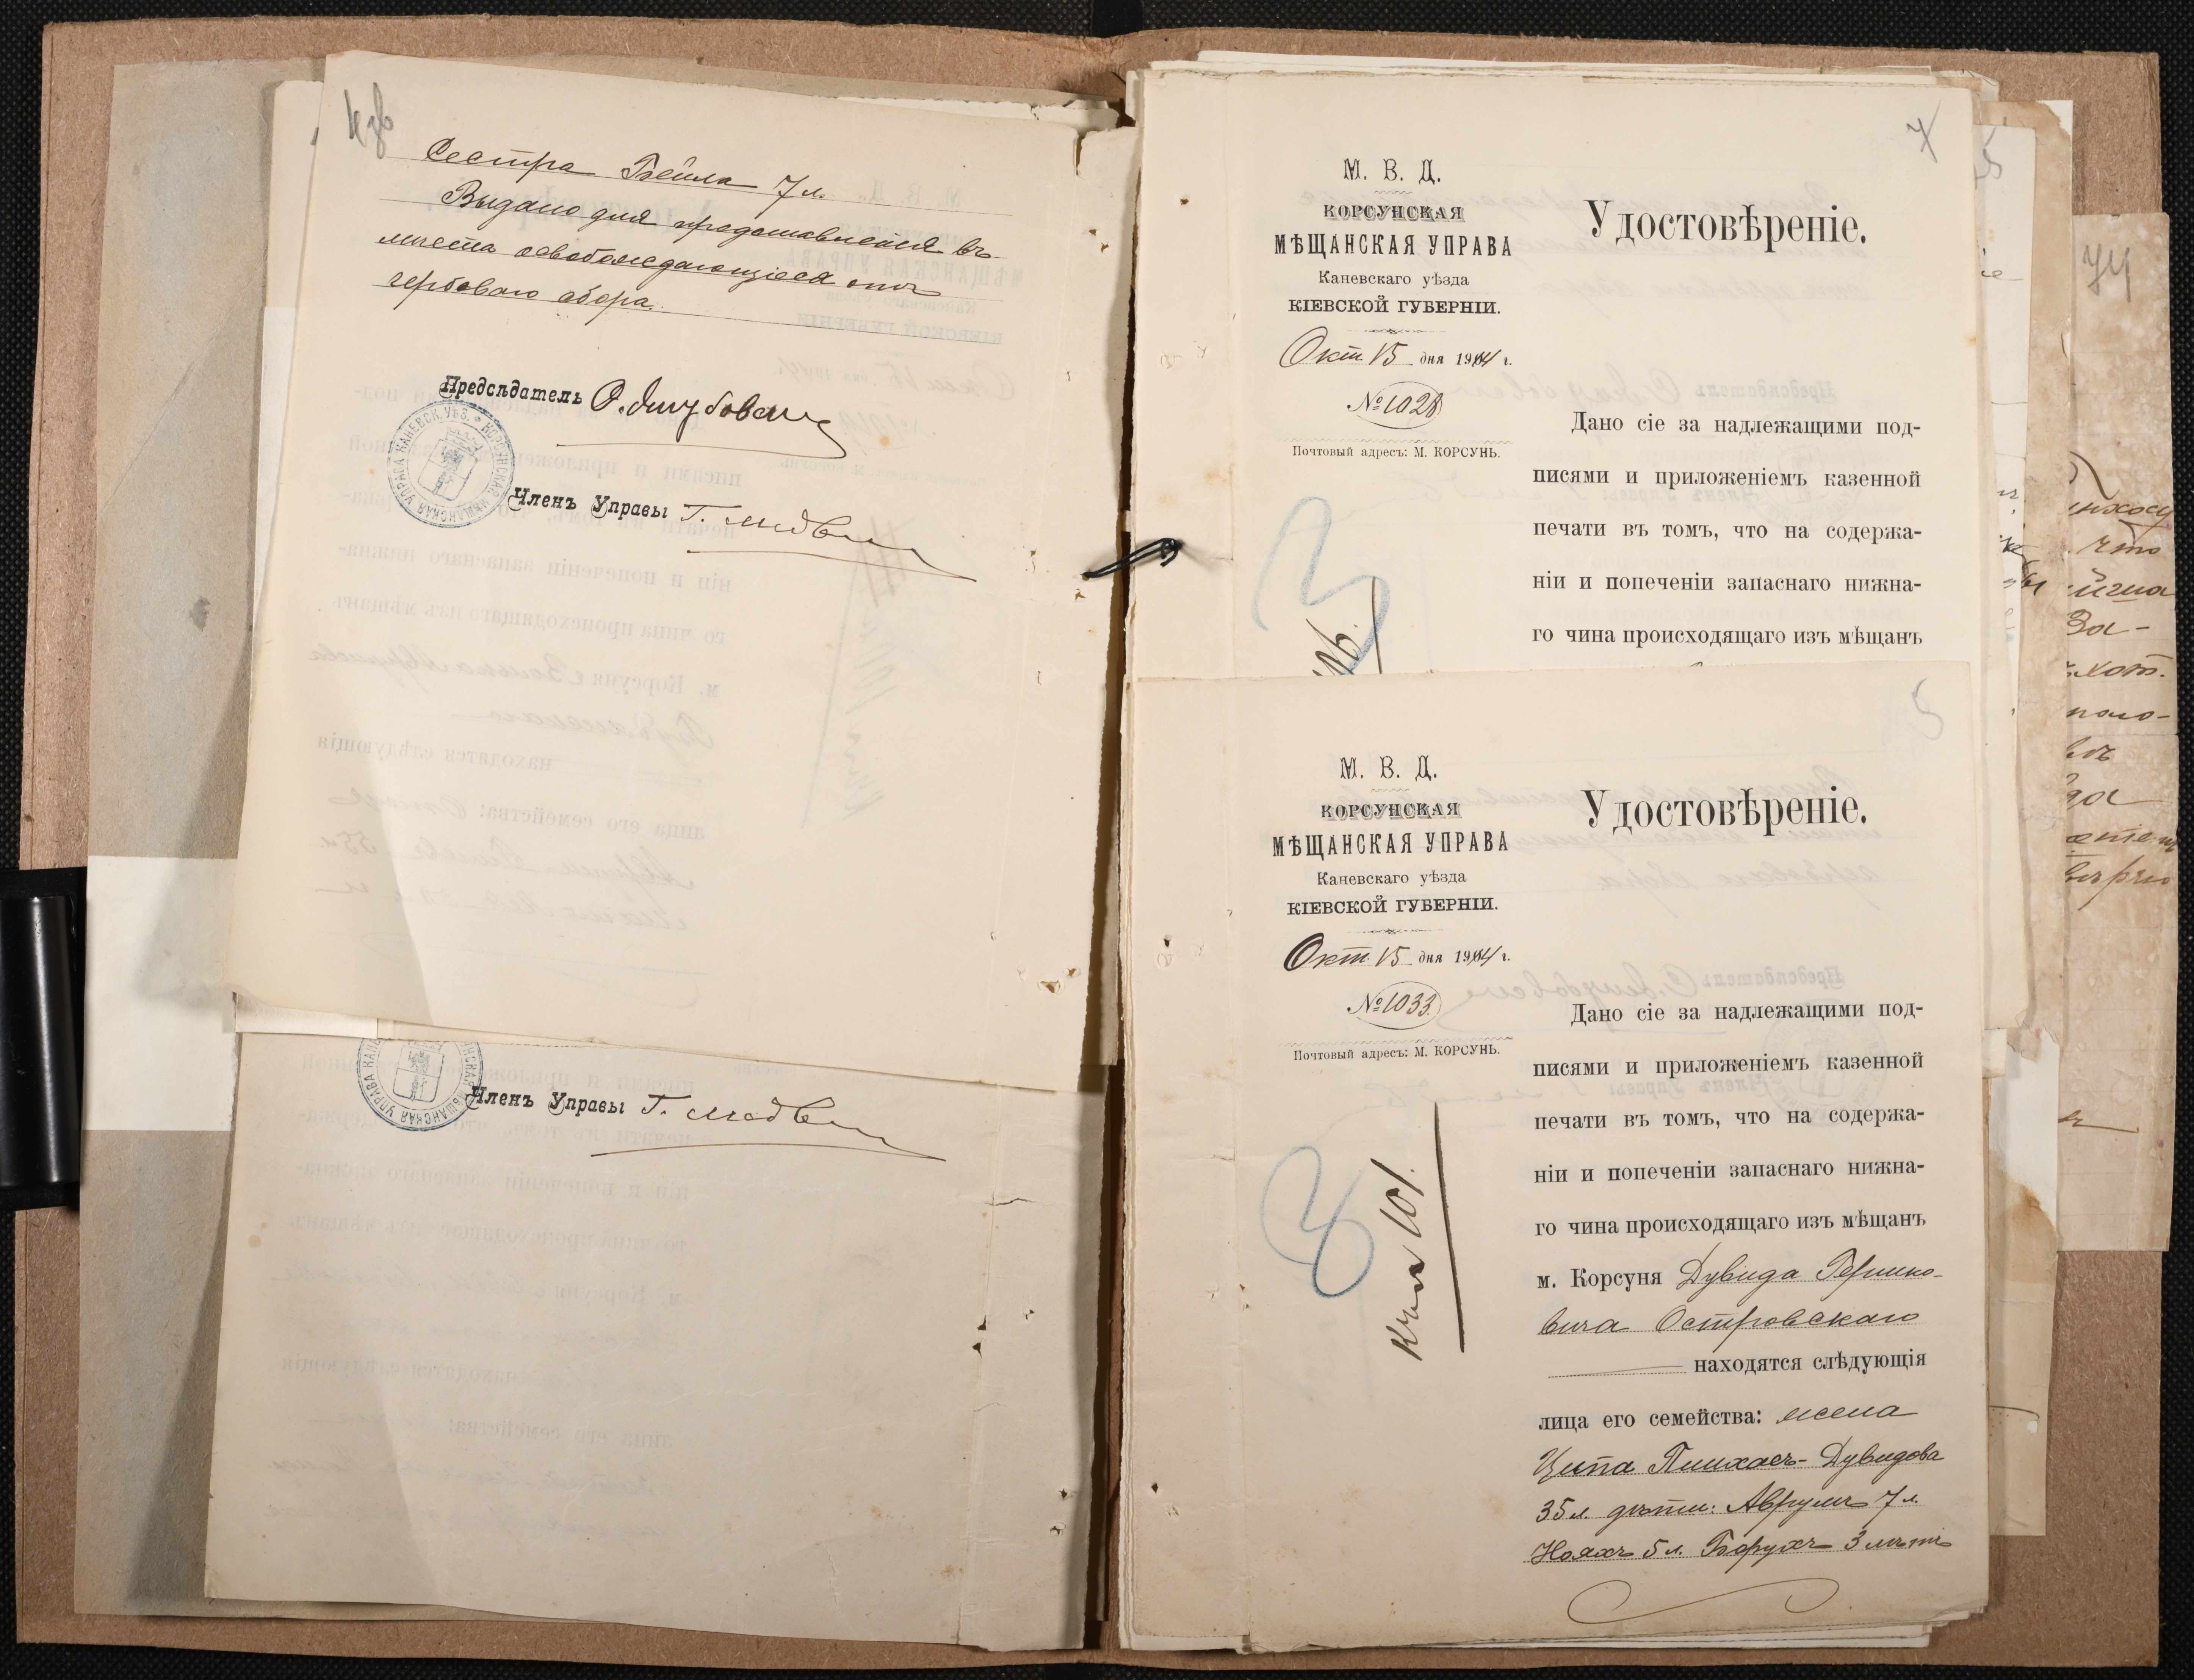 Сестра Бейла 7 л.
Выдано для представленія въ
мѣста освобождающіеся отъ
гербоваго сбора.
Предсѣдатель
КОРСУНСКАЯ МѢЩАНСКАЯ УПРАВА КАНЕВСК. УѢЗ.
Членъ Управы Г. Медв
Членъ Управы Г. Медв
М. В. Д.
КОРСУНСКАЯ
МѢЩАНСКАЯ УПРАВА
Каневскаго уѣзда
КІЕВСКОЙ ГУБЕРНІИ.
Окт. 15 дня 1904 г.
№ 1028
Почтовый адресъ: М. КОРСУНЬ.
Удостовѣреніе.
Дано сіе за надлежащими под-
писями и приложеніемъ казенной
печати въ томъ, что на содержа-
ніи и попеченіи запаснаго нижня-
го чина происходящаго изъ мѣщанъ
5
М. В. Д.
КОРСУНСКАЯ
МѢЩАНСКАЯ УПРАВА
Каневскаго уѣзда
КІЕВСКОЙ ГУБЕРНІИ.
Окт. 15 дня 1904 г.
№ 1033.
Почтовый адресъ: М. КОРСУНЬ.
Удостовѣреніе.
Дано сіе за надлежащими под-
писями и приложеніемъ казенной
печати въ томъ, что на содержа-
ніи и попеченіи запаснаго нижня-
го чина происходящаго изъ мѣщанъ
м. Корсуня Дувида Гершко-
вича Островскаго
находятся слѣдующія
лица его семейства: жена
Ципа Пинхасъ-Дувидова
35 л. дѣти: Аврумъ 7 л.
Нояхъ 5 л. Борухъ 3 лѣтъ
101.